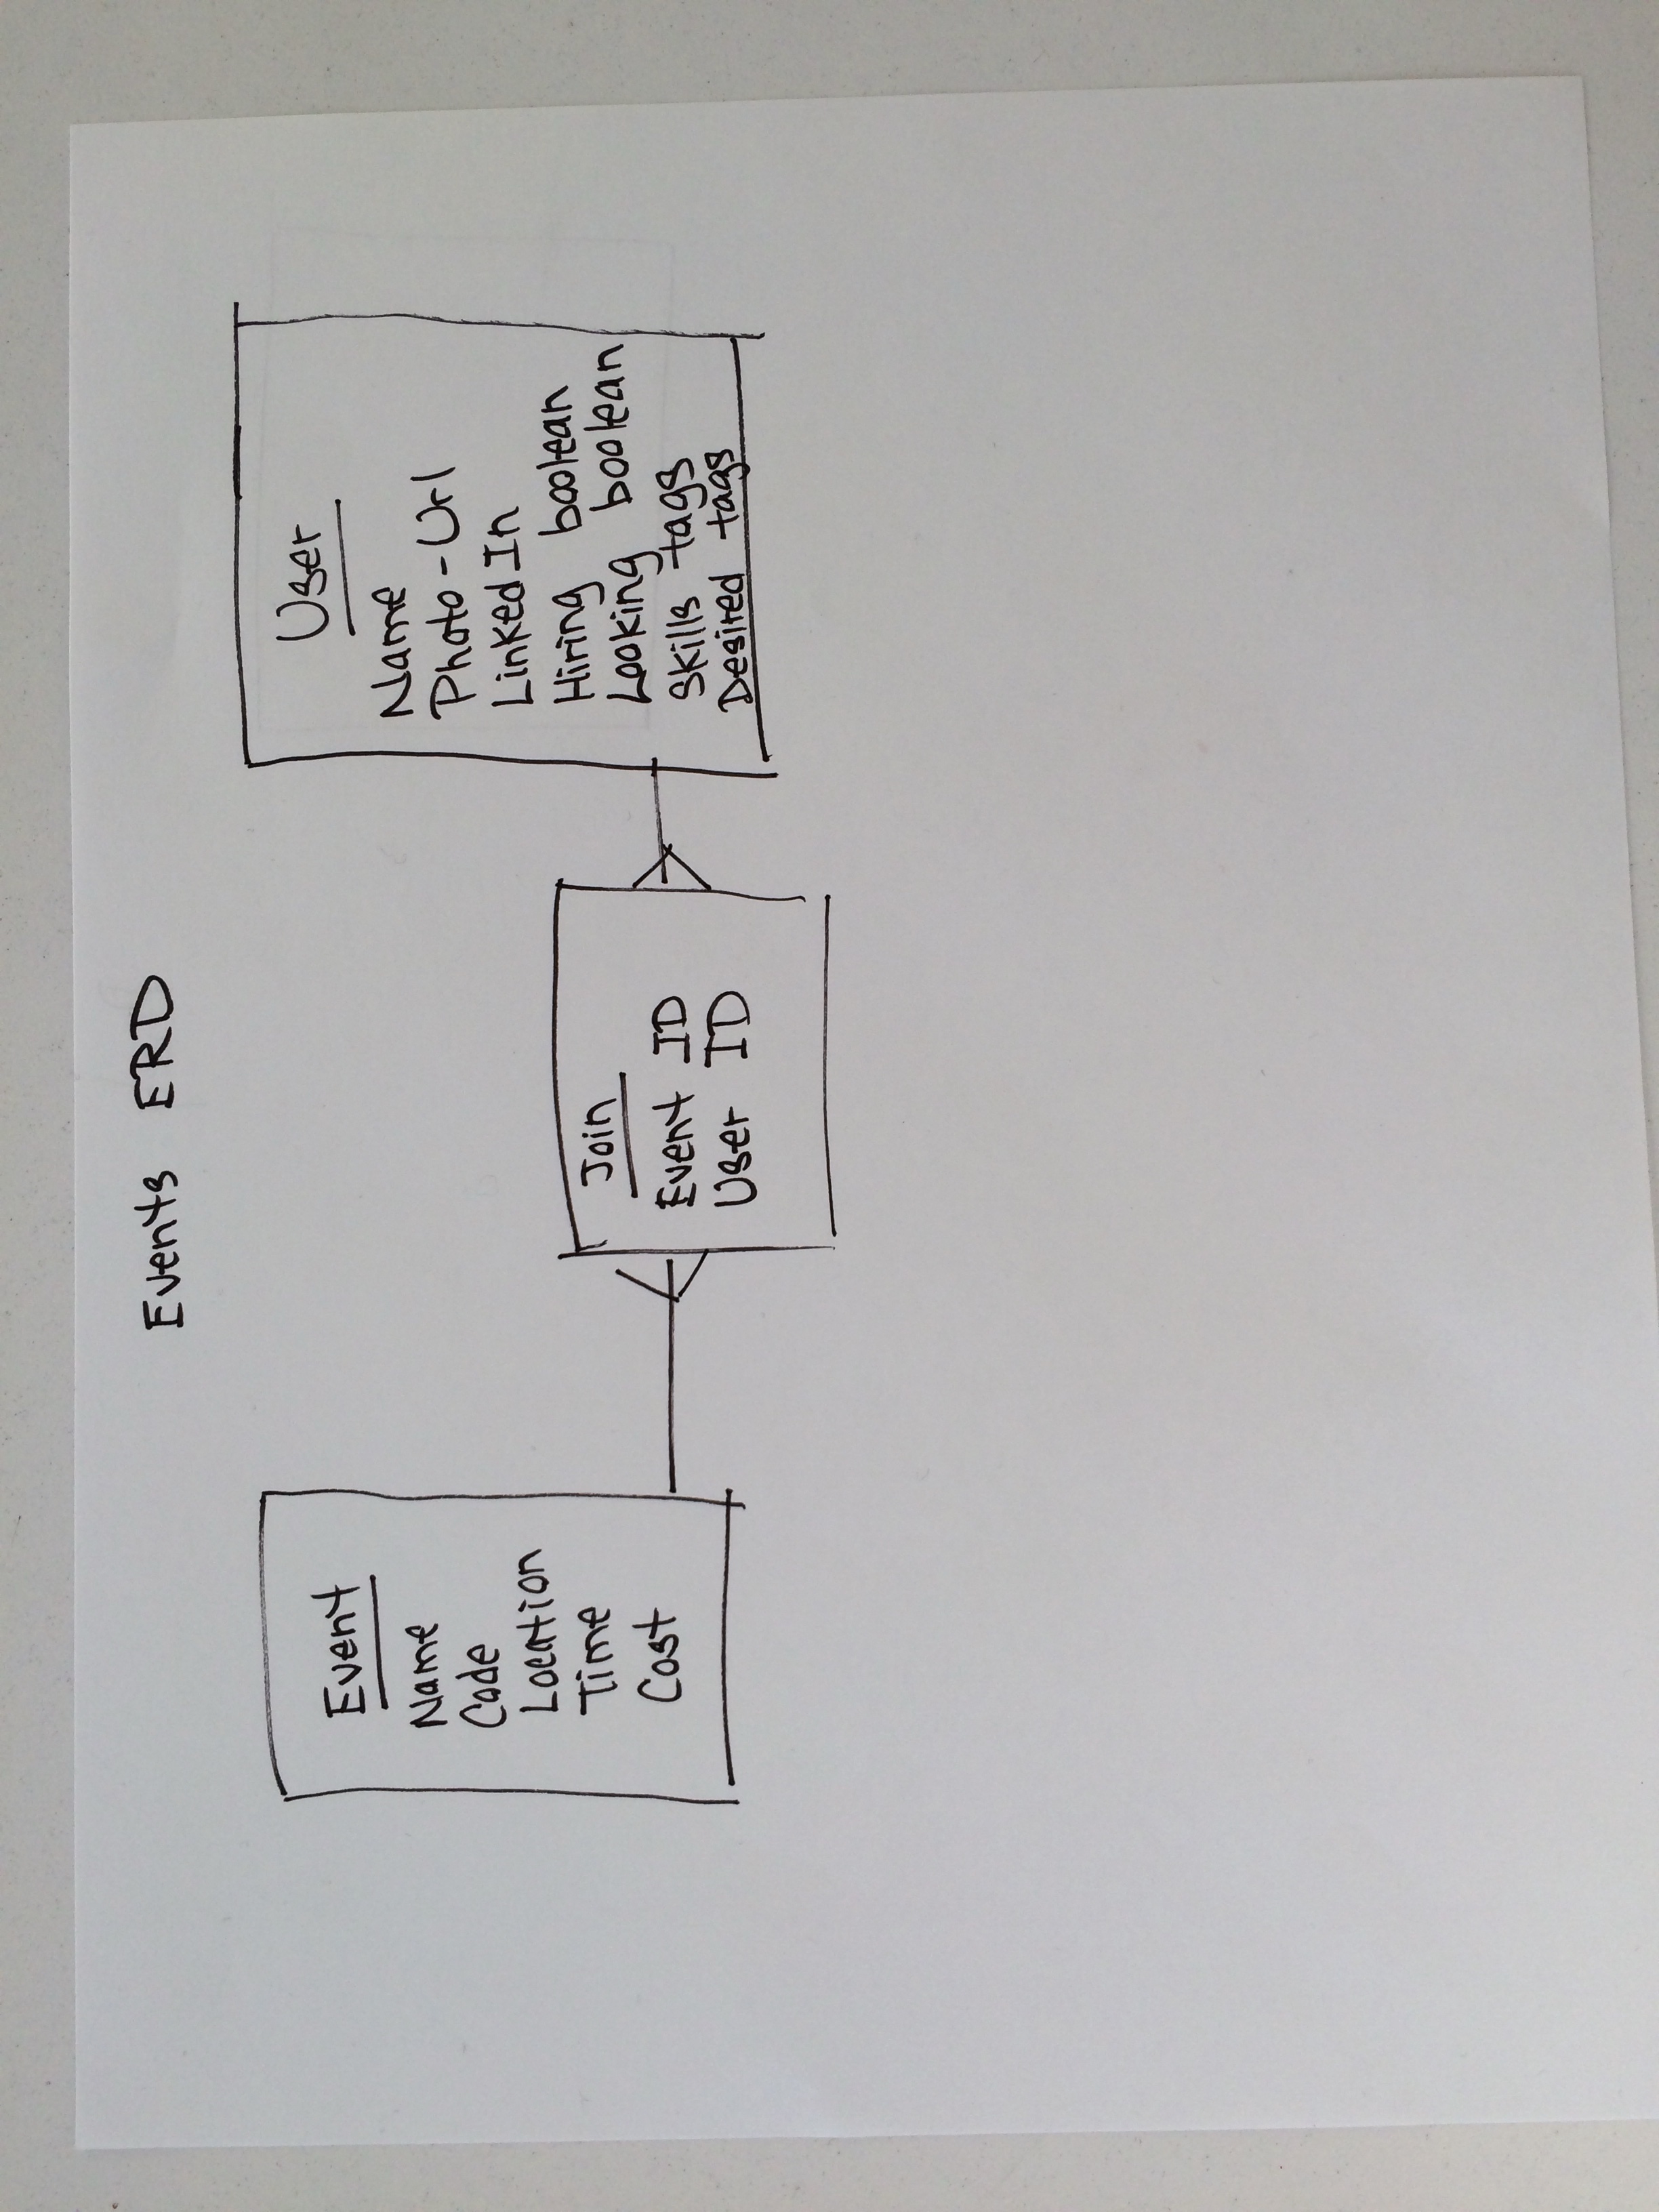 Events ERD
Event
Name
Code
Location
Time
Cost
Join
Event ID
User ID
User
Name
Photo-Url
LinkedIn
Hiring boolean
Looking boolean
Skills tags
Desired tags